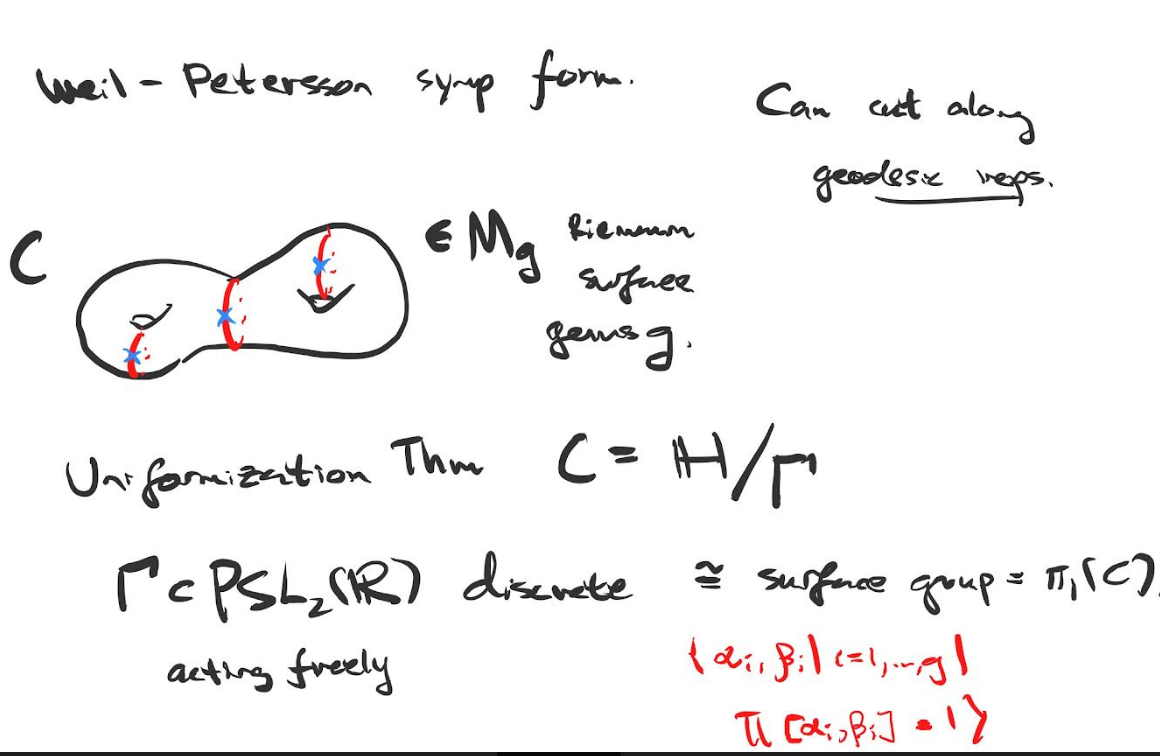 Weil - Petersson symp form.
Can cut along
geodesic reps.
C
∈ Mg Riemann
surface
genus g.
Uniformization Thm C = ℍ/Γ
Γ ⊂ PSL₂(ℝ) discrete ≅ surface group = π₁(C).
acting freely
⟨ αi, βi | i=1,...,g |
∏ [αi, βi] = 1 ⟩